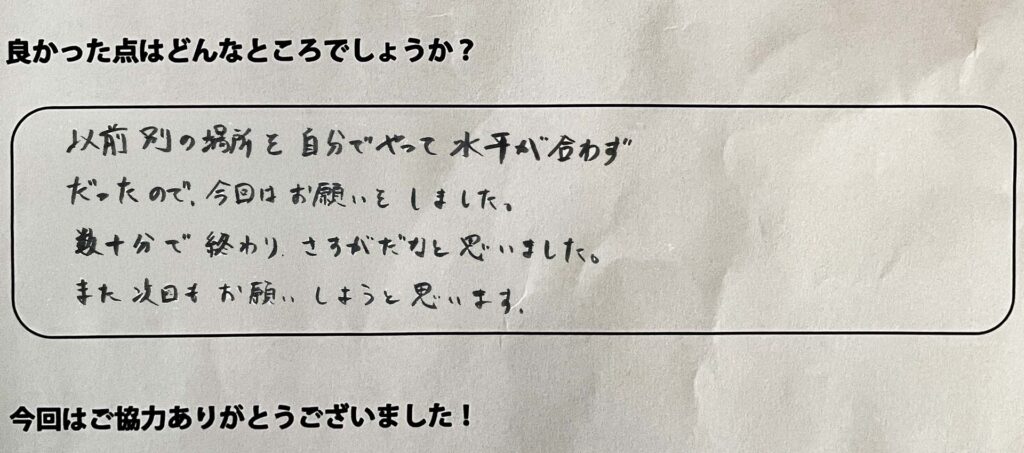 良かった点はどんなところでしょうか？
以前別の場所を自分でやって水平が合わず
だったので、今回はお願いをしました。
数十分で終わり、さすがだなと思いました。
また次回もお願いしようと思います。
今回はご協力ありがとうございました！